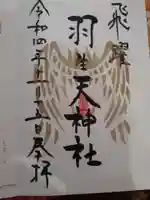 飛躍
羽生天神社
令和四年一月十五日奉拝